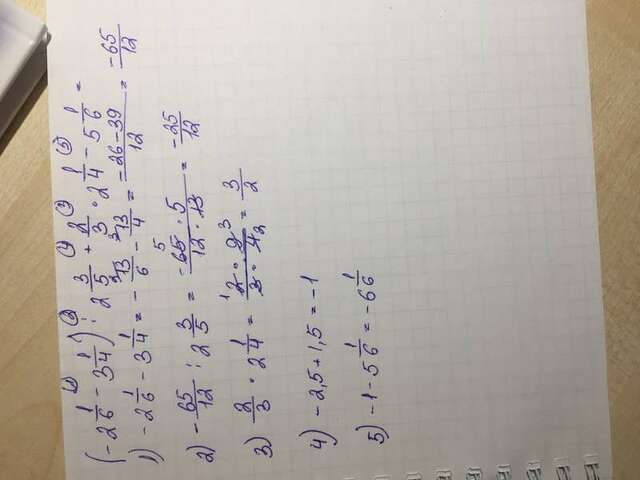 (-2 1/6 - 3 1/4) : 2 3/5 + 2/3 · 2 1/4 - 5 1/6 =
1) -2 1/6 - 3 1/4 = - 13/6 - 13/4 = (-26-39)/12 = -65/12
2) - 65/12 : 2 3/5 = - (65 · 5)/(12 · 13) = -25/12
3) 2/3 · 2 1/4 = (2 · 9)/(3 · 4) = 3/2
4) -2,5 + 1,5 = -1
5) -1 - 5 1/6 = -6 1/6